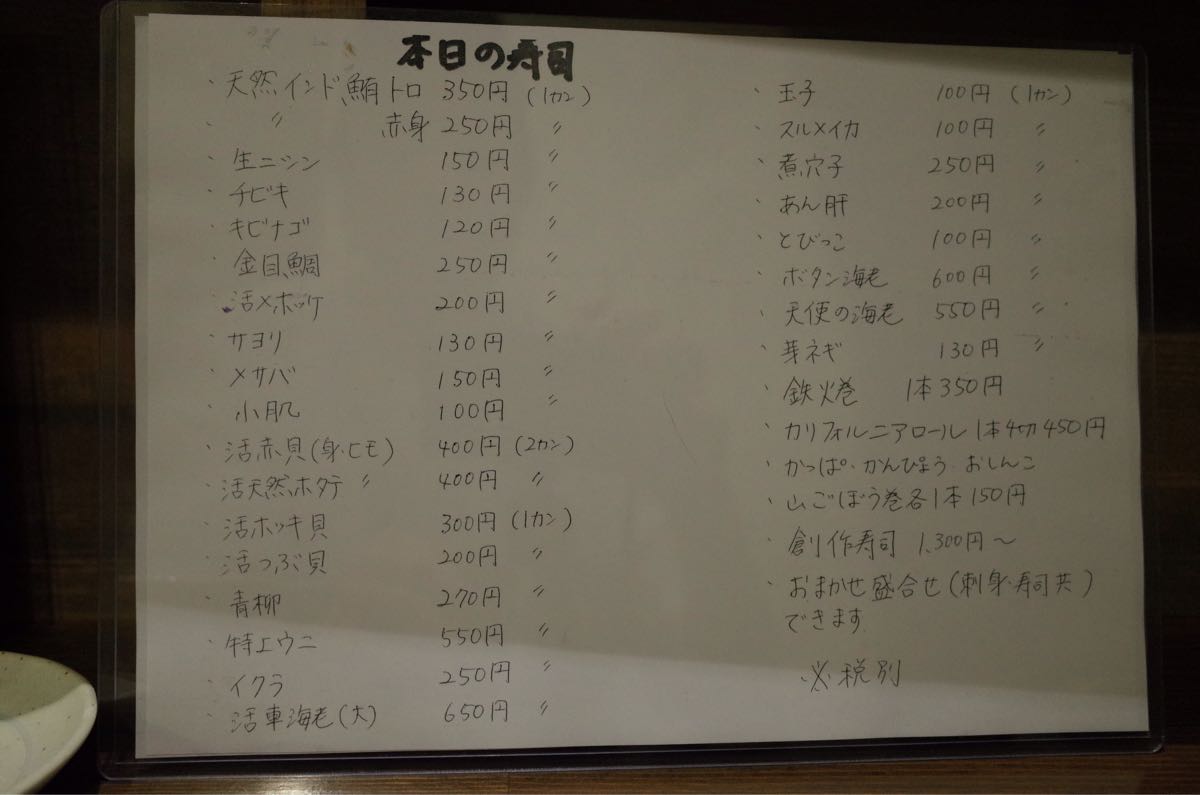 本日の寿司
・天然インド鮪 トロ 350円 (1カン)
・ 〃 赤身 250円 〃
・生ニシン 150円 〃
・チビキ 130円 〃
・キビナゴ 120円 〃
・金目鯛 250円 〃
・活〆ホッケ 200円 〃
・サヨリ 130円 〃
・〆サバ 150円 〃
・小肌 100円 〃
・活赤貝(身・ヒモ) 400円 (2カン)
・活天然ホタテ 〃 400円 〃
・活ホッキ貝 300円 (1カン)
・活つぶ貝 200円 〃
・青柳 270円 〃
・特上ウニ 550円 〃
・イクラ 250円 〃
・活車海老(大) 650円 〃
・玉子 100円 (1カン)
・スルメイカ 100円 〃
・煮穴子 250円 〃
・あん肝 200円 〃
・とびっこ 100円 〃
・ボタン海老 600円 〃
・天使の海老 550円 〃
・芽ネギ 130円 〃
・鉄火巻 1本350円
・カリフォルニアロール 1本4切450円
・かっぱ・かんぴょう・おしんこ
・山ごぼう巻各1本150円
・創作寿司 1,300円〜
・おまかせ盛合せ(刺身・寿司共)
できます
※税別